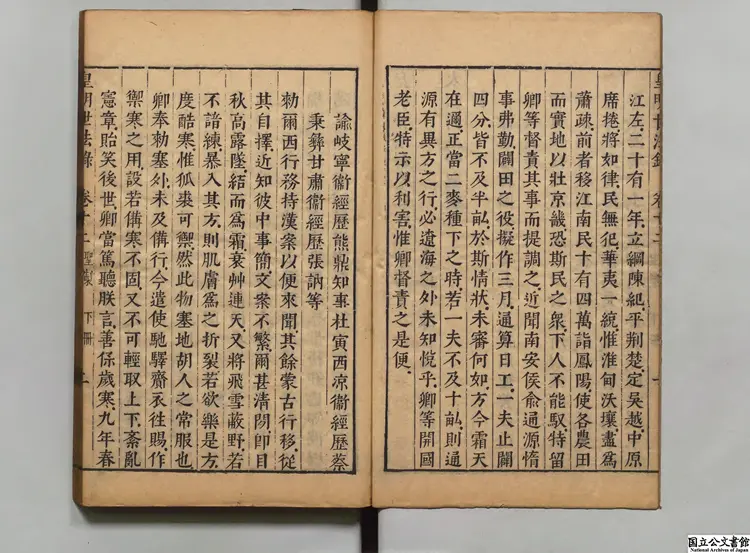 皇明世法錄 卷十二
江左二十有一年立綱陳紀平荆楚定吳越中原
席捲將如律民無犯華夷一統惟淮甸沃壤盡爲
蕭疏前者移江南民十有四萬詣鳳陽使各農田
而實地以壯京畿恐斯民之衆下人不能馭特留
卿等督責其事而提調之近聞南安侯俞通源惰
事弗勤闢田之役擬作三月通算日工一夫止闢
四分皆不及半畝於斯情狀未審何如方今霜天
在邇正當二麥種下之時若一夫不及十畝則通
源有異方之行必遺海之外未知悅乎卿等開國
老臣特示以利害惟卿督責之是便
諭岐寧衞經歷熊鼎知事杜寅西涼衞經歷蔡
秉彜甘肅衞經歷張訥等
勑爾西行務持漢案以便來聞其餘蒙古行移從
其自擇近知彼中事簡文案不繁爾甚清閑卽目
秋高露墜結而爲霜衰艸連天又將飛雪蔽野若
不諳練暴入其方則肌膚爲之折裂若欲樂是方
度酷寒惟狐裘可禦然此物塞地胡人之常服也
卿奉勑塞外未及備行今遣使馳驛齎衣徃賜作
禦寒之用設若備寒不固又不可輕取上下紊亂
憲章貽笑後世卿當篤聽朕言善保歲寒九年春
皇明世法錄 卷十二 聖謨 下冊 二
国立公文書館
National Archives of Japan